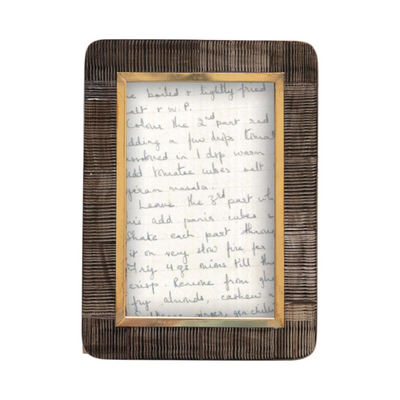 boiled & lightly fried
salt & w. P.
Colour the 2nd part red
adding a few drops tomat
in 1 dsp warm
add tomatoe cubes salt
garam masala.
Leave the 3rd part wh
add panir cubes
Shake each part throu
it on very slow fire for
Fry 4 oz onions till th
crisp. Remove from ghe
fry almonds, cashew n